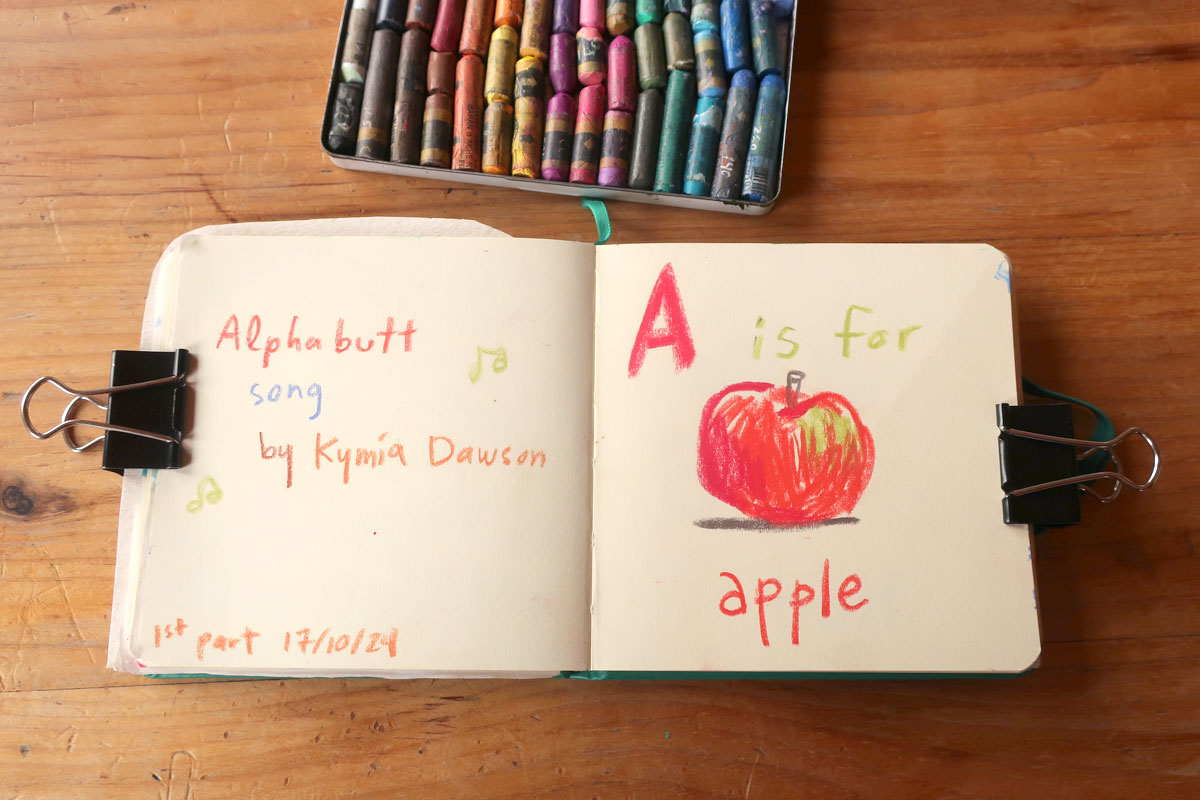 Alphabutt
song
by Kymia Dawson
1st part 17/10/24
A is for
apple